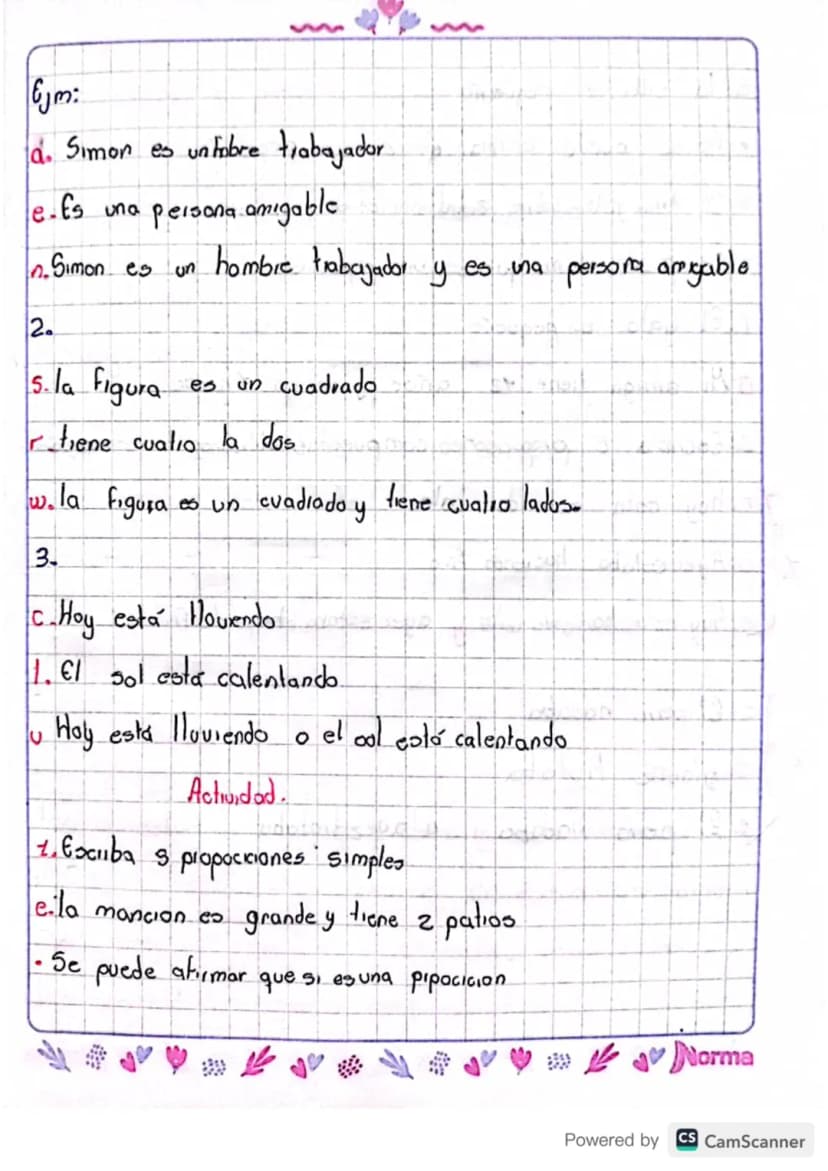 Ejm:
d. Simon es un fobre trabajador
e. Es una persona amigable
n. Simon es un hombre trabajador y es una persona amigable
2.
s. la figura es un cuadrado
r. tiene cuatro la dos
w. la figura es un cuadrado y tiene cuatro lados.
3.
c. Hoy está lloviendo
l. El sol está calentando
u Hoy está lloviendo o el sol está calentando
Actividad.
1. Escriba s propocciones simples
e. la mancion es grande y tiene 2 patios
. Se puede afirmar que si es una pipocicion
Norma
Powered by CS CamScanner